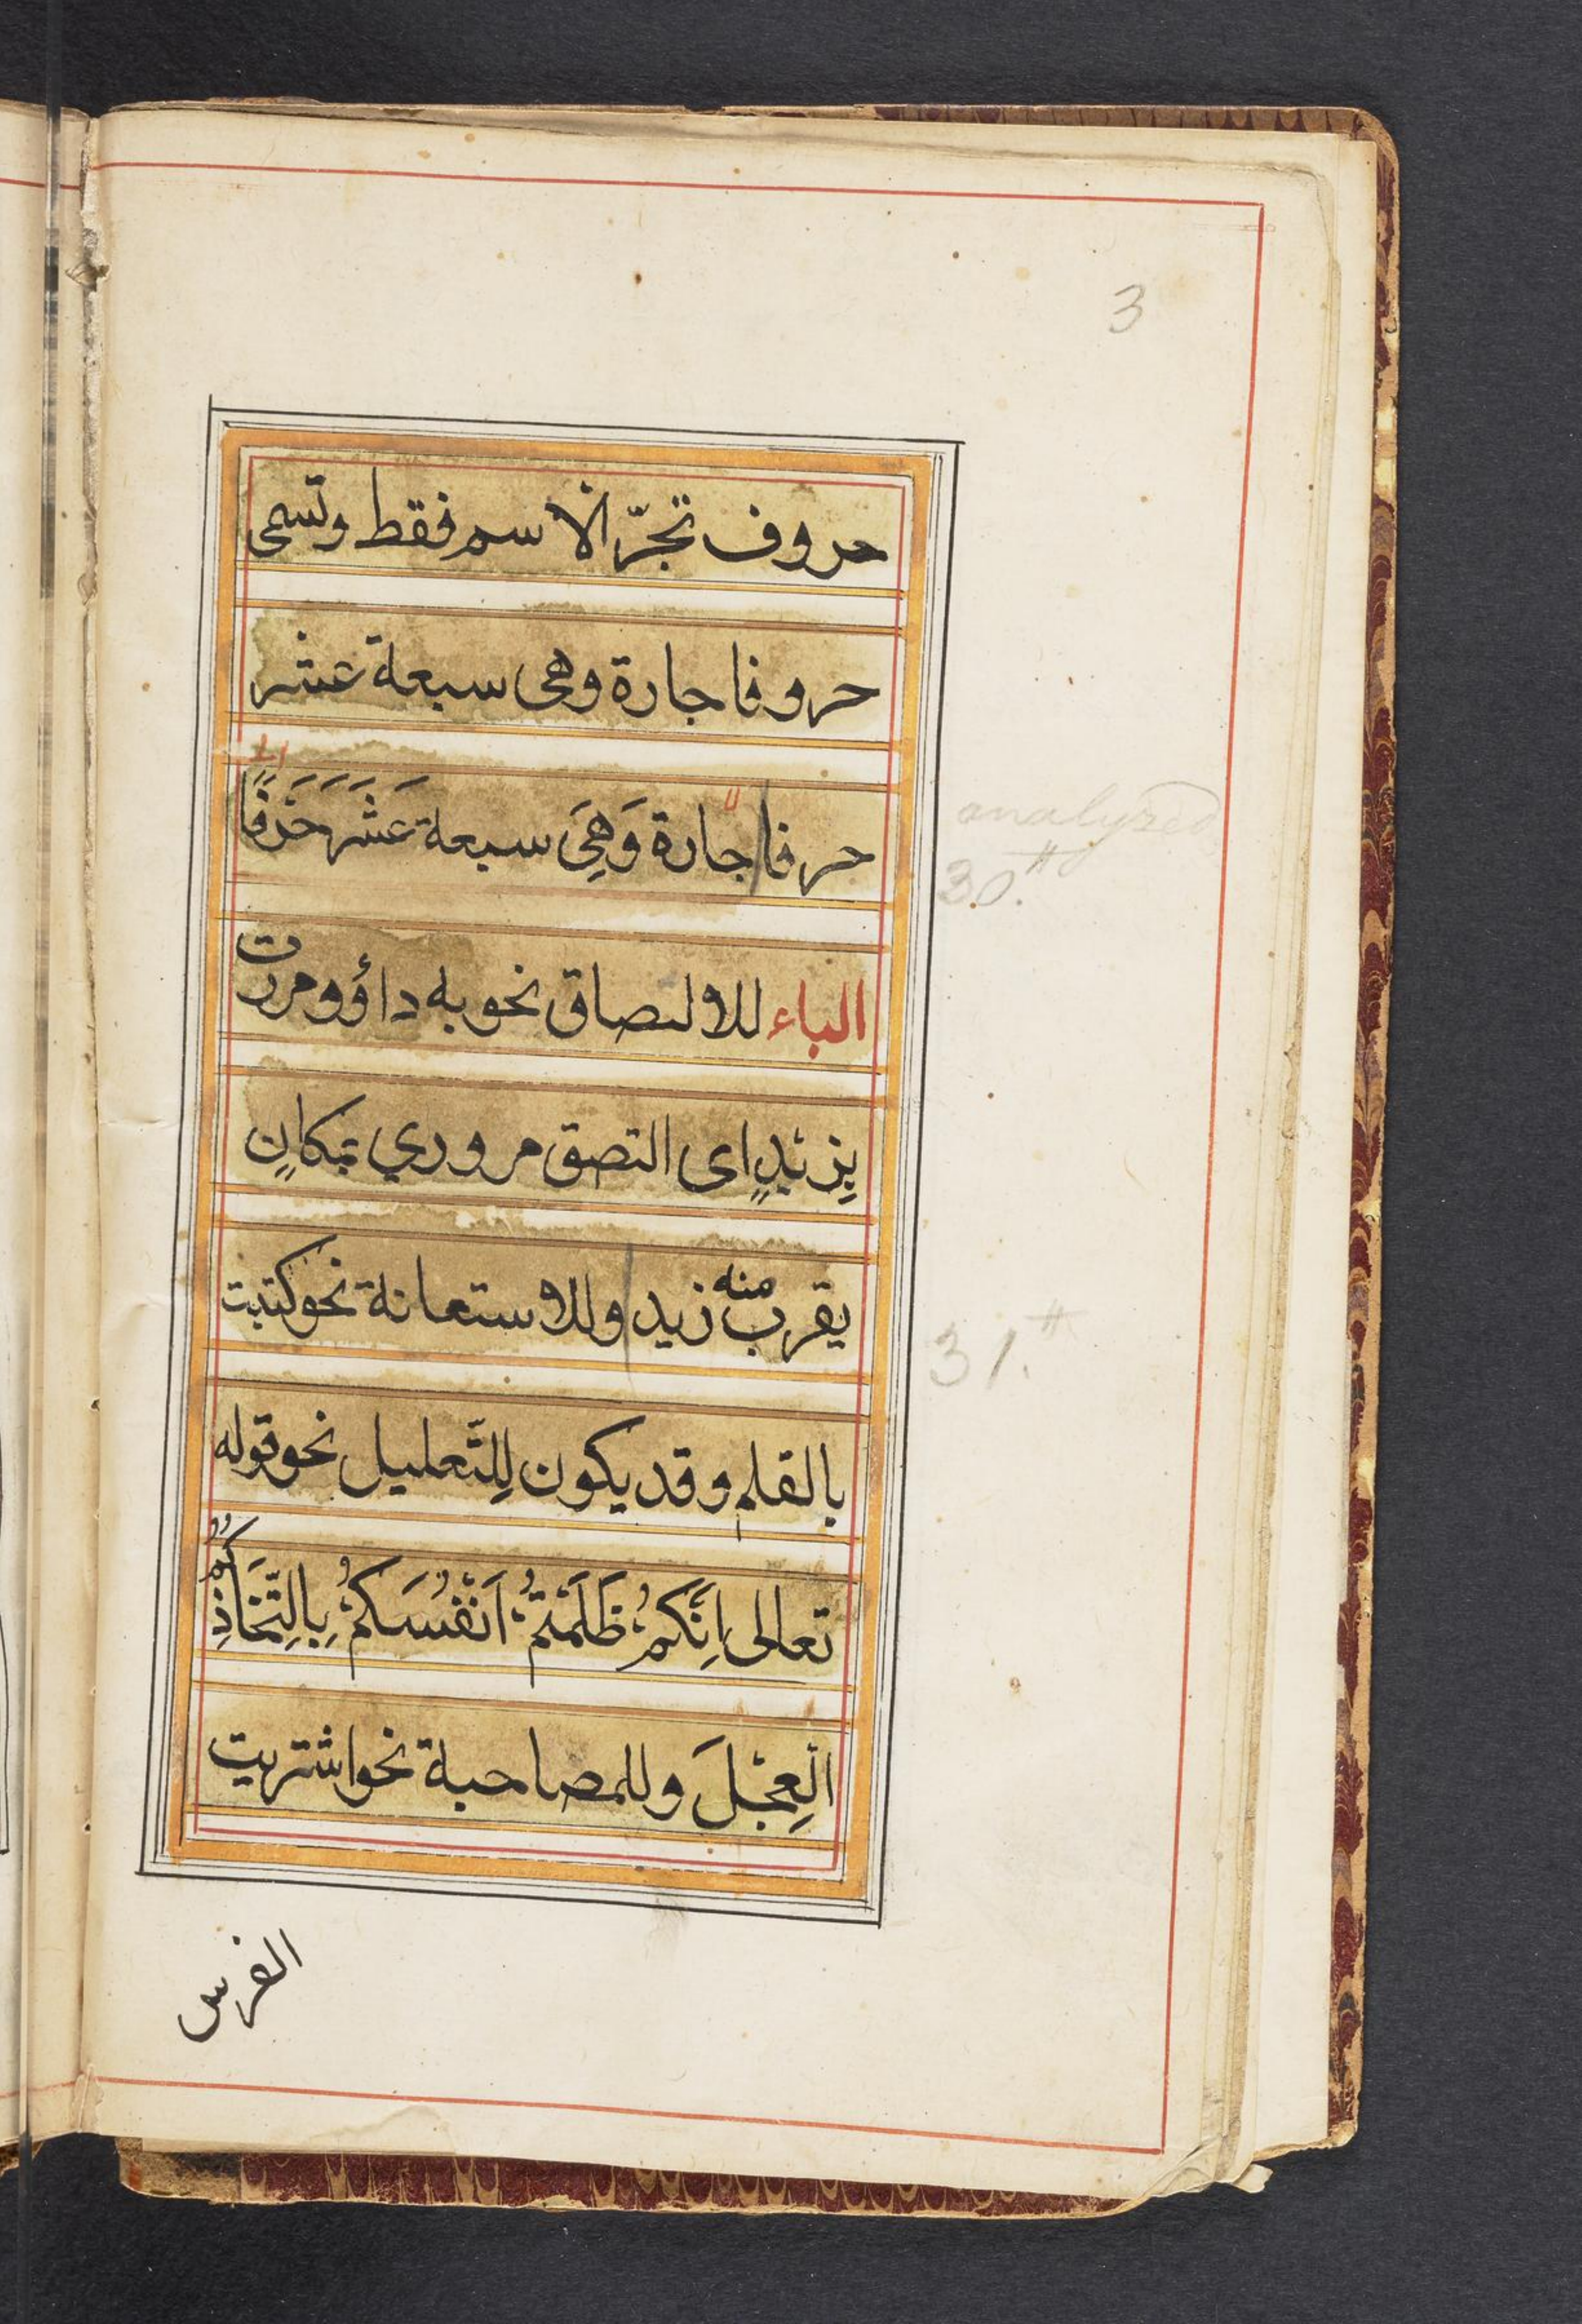 3
حروف تجرّ الاسم فقط وتسمى
حروفا جارة وهى سبعة عشر
حرفا جارة وَهِىَ سبعة عَشَرَ حَرْفًا
analyzed
30.
الباء للالتصاق نحو به داؤ ومررت
بِزَيْدٍ اى التصق مروري بمكانٍ
يقرب منه زيد وللاستعانة نحو كتبت
31.
بالقلم وقد يكون لِلتَّعليل نحو قوله
تعالى اِنَّكُمْ ظَلَمْتُمْ اَنْفُسَكُمْ بِاتِّخَاذِكُمُ
الْعِجْلَ وللمصاحبة نحو اشتريت
الفرس